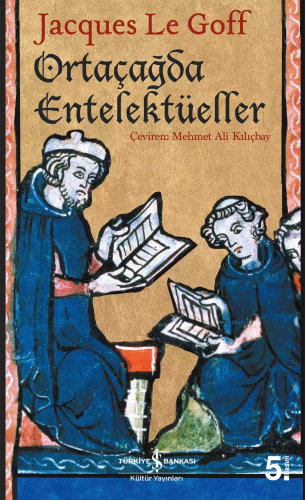 Jacques Le Goff
Ortaçağda
Entelektüeller
Çeviren: Mehmet Ali Kılıçbay
TÜRKİYE İŞ BANKASI
Kültür Yayınları
5.
Basım